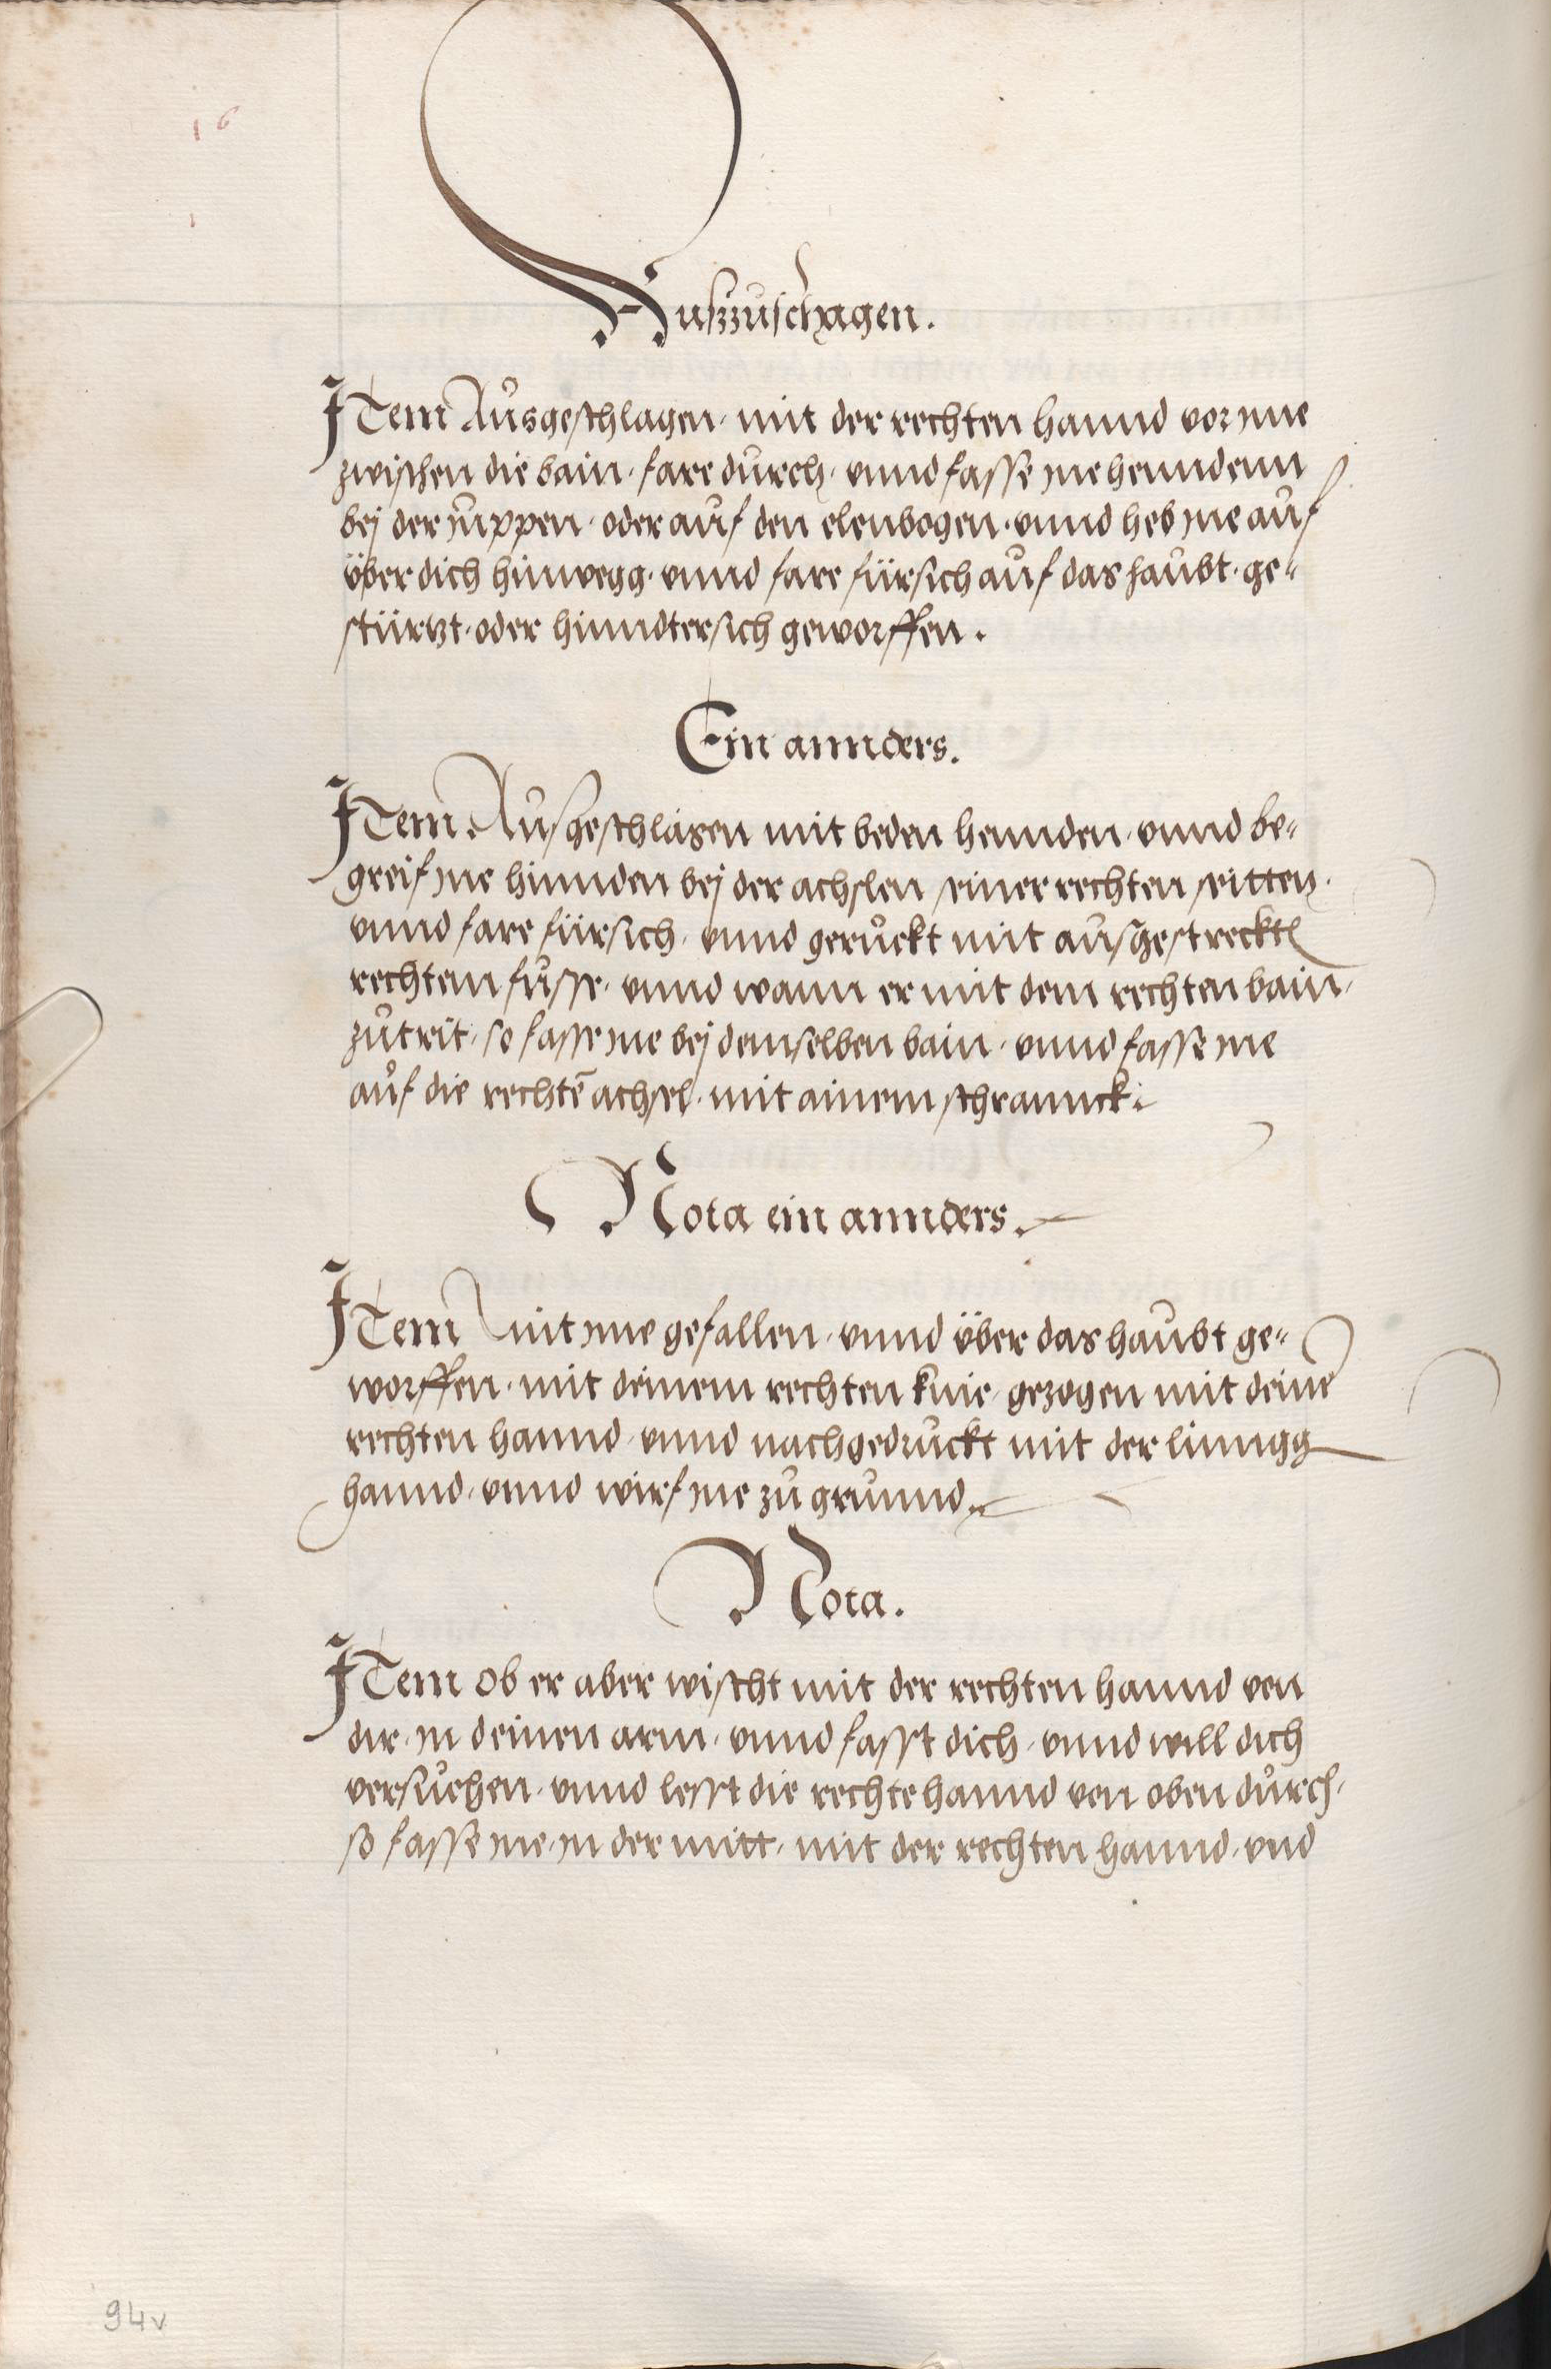 16
Auſzzuſchlagen.
Item Ausgeſchlagen· mit der rechten hannd vor jme
zwiſchen die bain· fare durch· vnnd faſſe jne henndenn
bej der juppen· oder auf den elenbogen· vnnd heb jne auf
über dich hinwegg· vnnd fare fürſich auf das haubt· ge⸗
ſtürtzt· oder hinndterſich geworffen.
Ein annders.
Item Auſgeſchlagen mit beden hennden· vnnd be⸗
greif jne hinnden bej der achſlen ſeiner rechten ſeitten·
vnnd fare fürſich· vnnd geruckt mit auſgeſtrecktē
rechtem fuſſe· vnnd wann er mit dem rechten bain·
zutrit· ſo faſſe jne bej demſelben bain· vnnd faſſe jne
auf die rechtē achſel· mit ainem ſchrannck.
Nota ein annders.
Item mit jme gefallen· vnnd über das haubt ge⸗
worffen· mit deinem rechten knie· gezogen mit deine
rechten hannd· vnnd nachgedruckt mit der linngg
hannd· vnnd wirf jne zu grunnd.
Nota.
Item ob er aber wiſcht mit der rechten hannd von
dir· jn deinen arm· vnnd faſſt dich· vnnd will dich
verſuchen· vnnd leſſt die rechte hannd von oben durch·
ſo faſſe jne· jn der mitt· mit der rechten hannd· vnd
94v